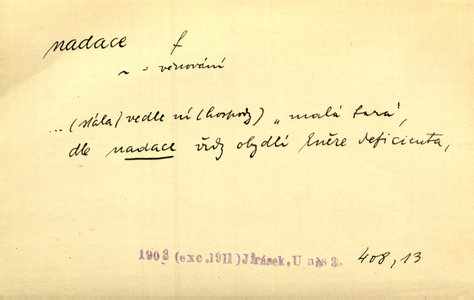 nadace f
~ = věnování
... (stála) vedle ní (hospody) „malá fara",
dle nadace vždy obydlí kněze deficienta,
1903 (exc. 1911) Jirásek, U nás 3. 408, 13